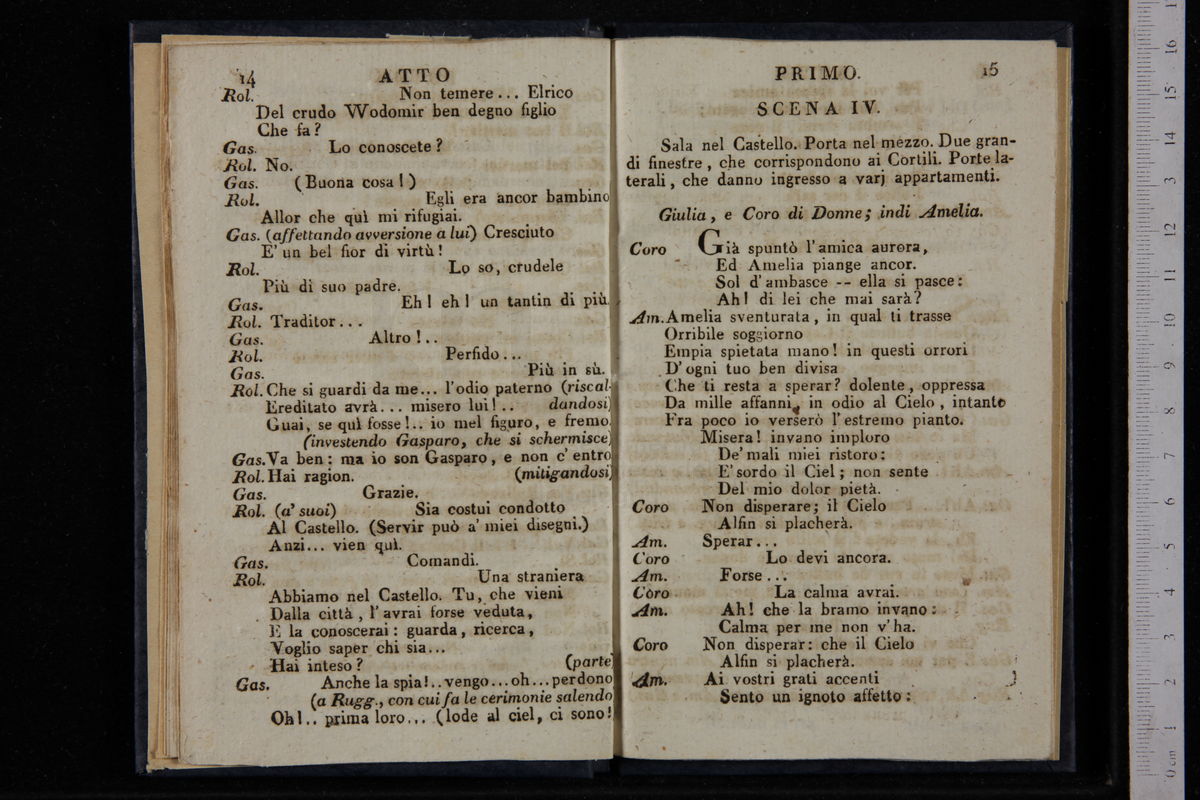 14 ATTO
Rol. Non temere... Elrico
Del crudo Wodomir ben degno figlio
Che fa?
Gas. Lo conoscete?
Rol. No.
Gas. (Buona cosa!)
Rol. Egli era ancor bambino
Allor che quì mi rifugiai.
Gas. (affettando avversione a lui) Cresciuto
E' un bel fior di virtù!
Rol. Lo so, crudele
Più di suo padre.
Gas. Eh! eh! un tantin di più.
Rol. Traditor...
Gas. Altro!..
Rol. Perfido...
Gas. Più in sù.
Rol. Che si guardi da me... l'odio paterno (riscal-
Ereditato avrà... misero lui!.. dandosi)
Guai, se quì fosse!.. io mel figuro, e fremo.
(investendo Gasparo, che si schermisce)
Gas. Va ben: ma io son Gasparo, e non c'entro
Rol. Hai ragion. (mitigandosi)
Gas. Grazie.
Rol. (a' suoi) Sia costui condotto
Al Castello. (Servir può a' miei disegni.)
Anzi... vien quì.
Gas. Comandi.
Rol. Una straniera
Abbiamo nel Castello. Tu, che vieni
Dalla città, l'avrai forse veduta,
E la conoscerai: guarda, ricerca,
Voglio saper chi sia...
Hai inteso? (parte)
Gas. Anche la spia!..vengo...oh...perdono
(a Rugg., con cui fa le cerimonie salendo
Oh!.. prima loro... (lode al ciel, ci sono!
PRIMO. 15
SCENA IV.
Sala nel Castello. Porta nel mezzo. Due gran-
di finestre, che corrispondono ai Cortili. Porte la-
terali, che danno ingresso a varj appartamenti.
Giulia, e Coro di Donne; indi Amelia.
Coro Già spuntò l'amica aurora,
Ed Amelia piange ancor.
Sol d'ambasce -- ella si pasce:
Ah! di lei che mai sarà?
Am. Amelia sventurata, in qual ti trasse
Orribile soggiorno
Empia spietata mano! in questi orrori
D'ogni tuo ben divisa
Che ti resta a sperar? dolente, oppressa
Da mille affanni, in odio al Cielo, intanto
Fra poco io verserò l'estremo pianto.
Misera! invano imploro
De' mali miei ristoro:
E' sordo il Ciel; non sente
Del mio dolor pietà.
Coro Non disperare; il Cielo
Alfin si placherà.
Am. Sperar...
Coro Lo devi ancora.
Am. Forse...
Coro La calma avrai.
Am. Ah! che la bramo invano:
Calma per me non v'ha.
Coro Non disperar: che il Cielo
Alfin si placherà.
Am. Ai vostri grati accenti
Sento un ignoto affetto:
0 cm 1 2 3 4 5 6 7 8 9 10 11 12 13 14 15 16